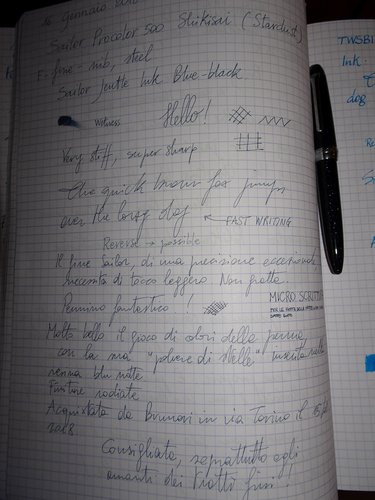 16 Gennaio
Sailor Procolor 500 Shikisai (Stardust)
F-fine-nib, steel
Sailor Jentle Ink Blue-black
Wetness Hello!
Very stiff, super sharp
The quick brown fox jumps
over the lazy dog ← FAST WRITING
Reverse → possible
Il fine Sailor, di una precisione eccezionale
necessità di tocco leggero. Non gratta.
Pennino fantastico!
MICRO SCRITTURA
Molto bello il gioco di colori della penna
con la sua "polvere di stelle" inserita nella
resina blu notte
Finiture rodiate
Acquistata da Brunori in via Torino il 15/
2018
Consigliata, soprattutto agli
amanti dei Tratti fini!
TWSBI
Ink:
dog